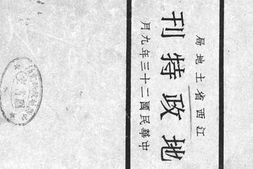 江西省土地局
地政特刊
中華民國二十三年九月